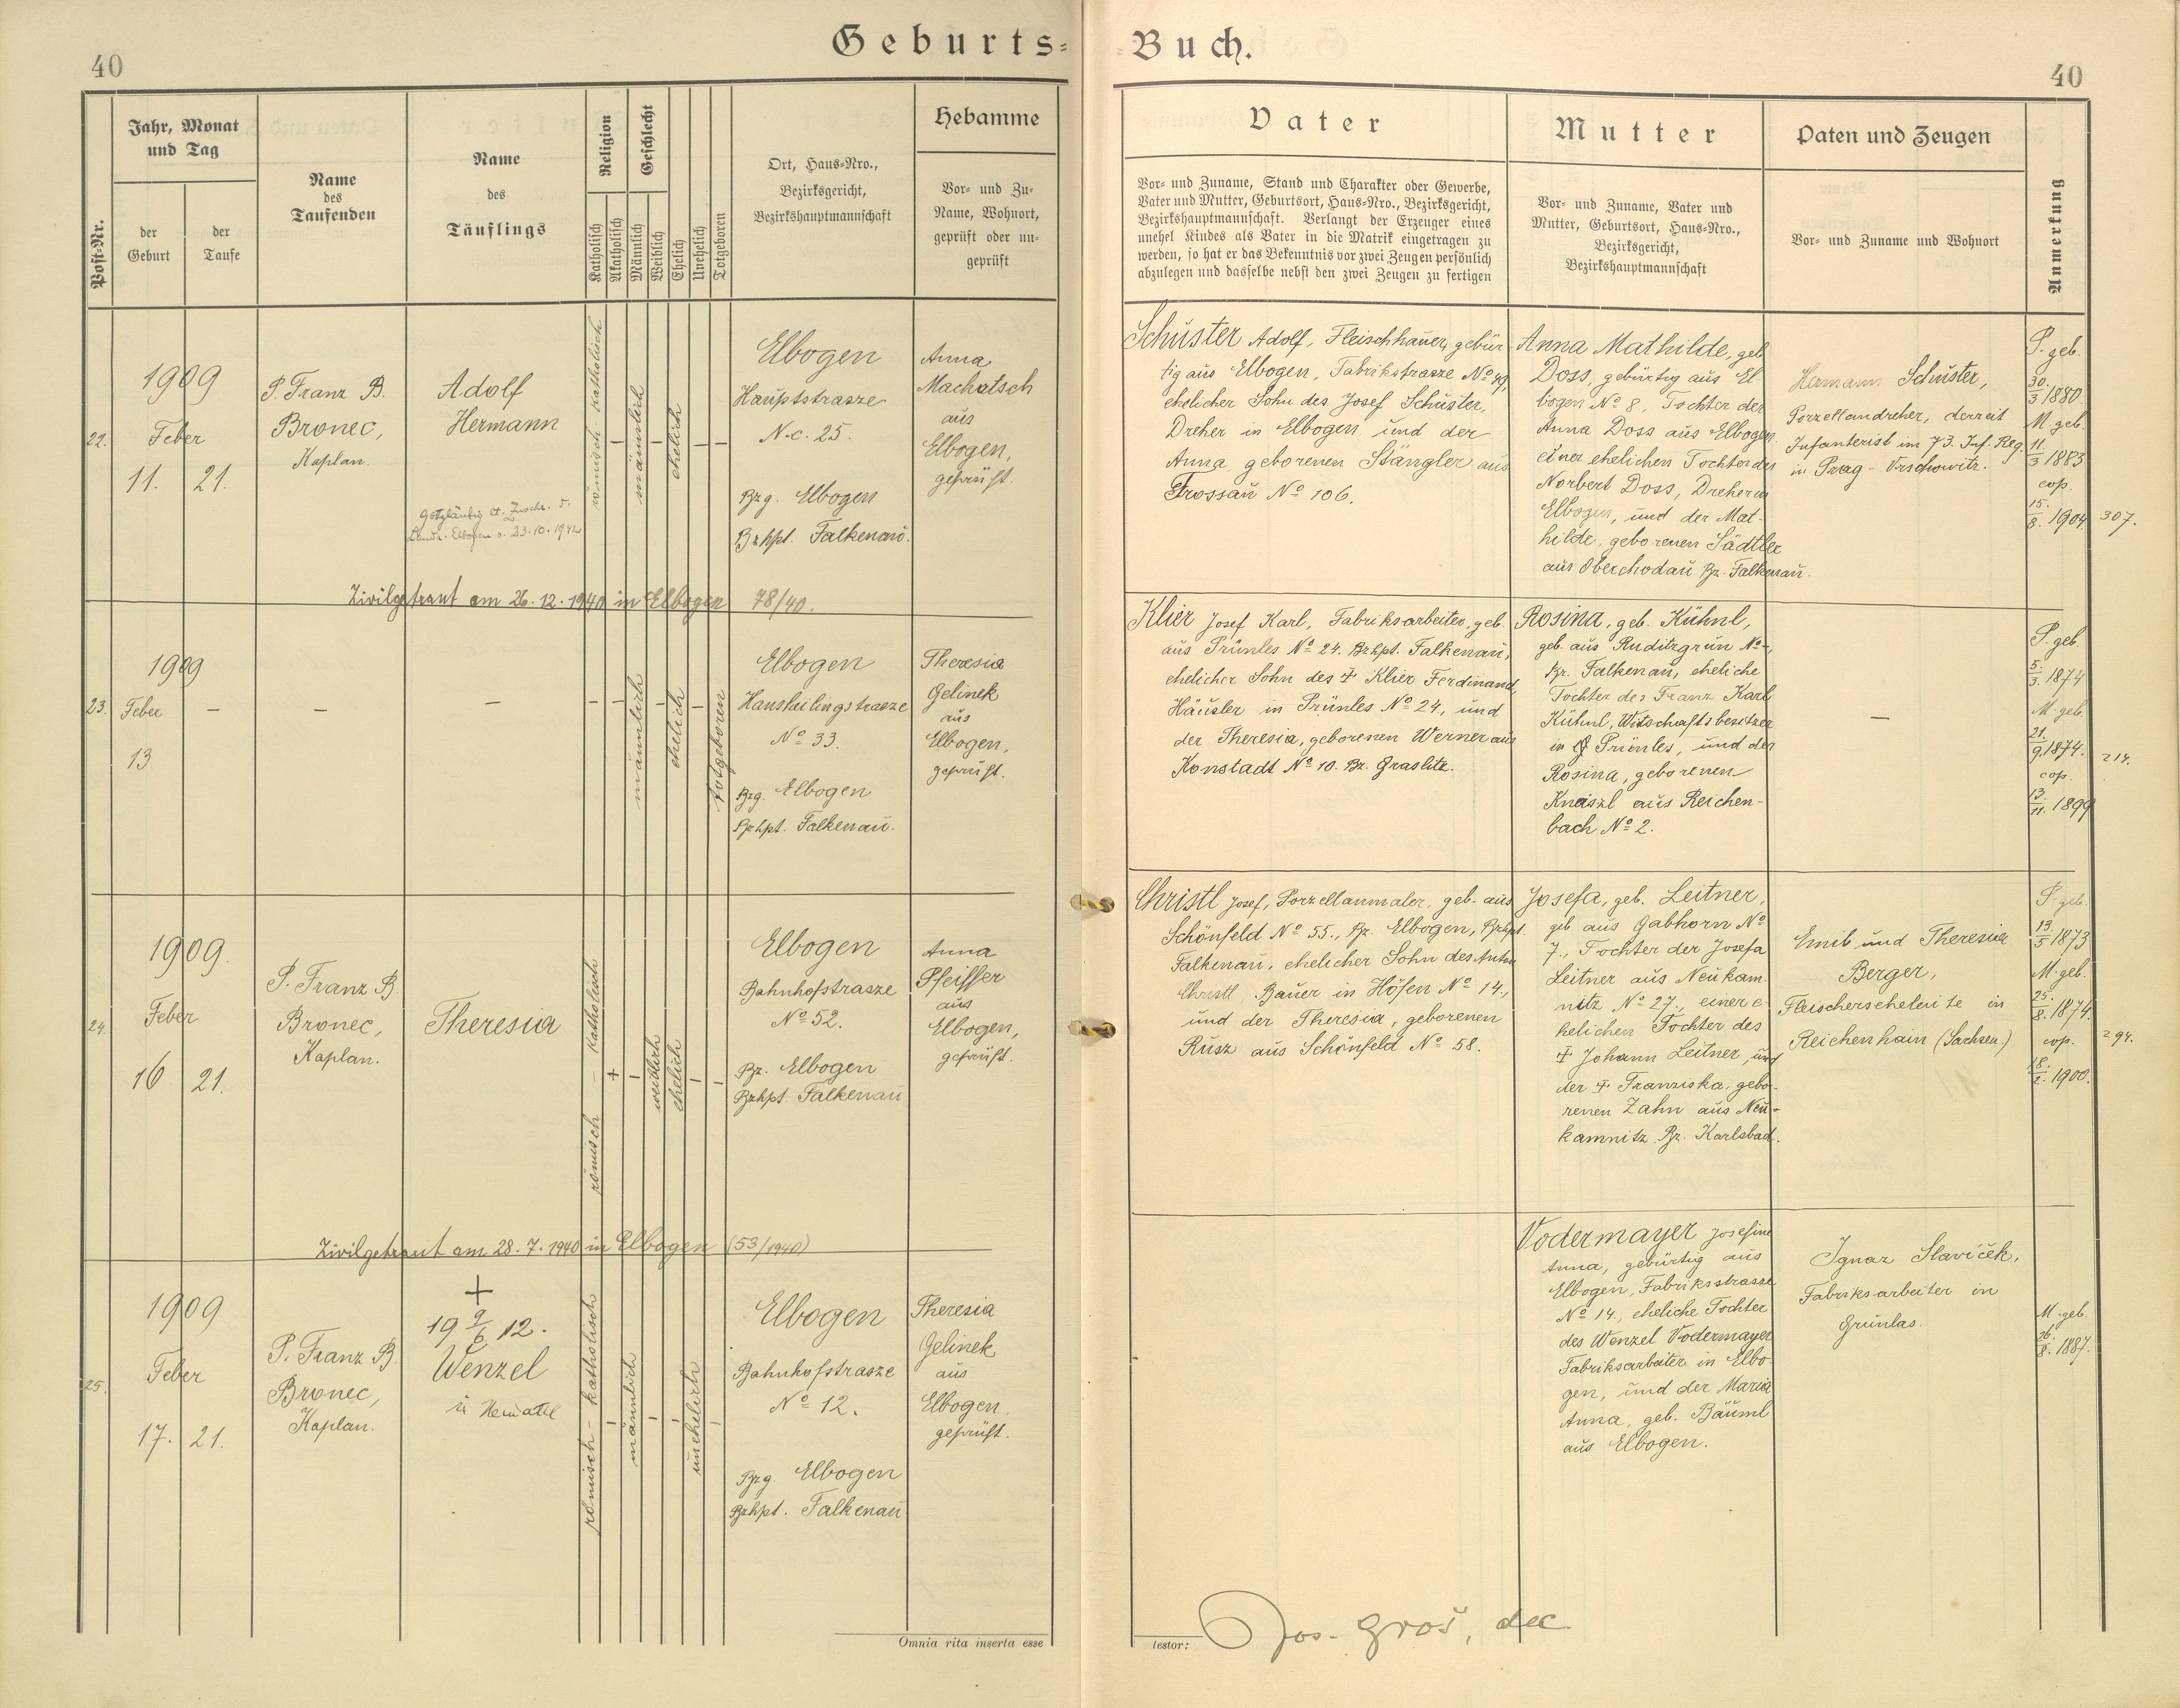 40
Geburts=
Jahr, Monat
und Tag
Hebamme
Post-Nr.
der
Geburt
der
Taufe
Name
des
Taufenden
Name
des
Täuflings
Religion
Geschlecht
Katholisch
Akatholisch
Männlich
Weiblich
Ehelich
Unehelich
Totgeboren
Ort, Haus-Nro.,
Bezirksgericht,
Bezirkshauptmannschaft
Vor- und Zu-
Name, Wohnort,
geprüft oder un-
geprüft
22.
1909
Feber
11. 21.
P. Franz B.
Bronec,
Kaplan.
Adolf
Hermann
Elbogen v. 23.10.1942
römisch-katholisch
–
männlich
–
ehelich
–
–
Elbogen
Hauptstrasze
N.c. 25.
Bzg. Elbogen
Bzhpt. Falkenau.
Anna
Machatsch
aus
Elbogen,
geprüft.
Zivilgetraut am 26.12.1940 in Elbogen 78/40.
23.
1909
Feber –
13
–
–
–
–
männlich
–
ehelich
–
totgeboren
Elbogen
Hansheilingstrasze
No 33.
Bzg. Elbogen
Bzhpt. Falkenau.
Theresia
Gelinek
aus
Elbogen,
geprüft.
24.
1909.
Feber
16 21.
P. Franz B.
Bronec,
Kaplan.
Theresia
römisch – katholisch
+
–
weiblich
ehelich
–
–
Elbogen
Bahnhofstrasze
No 52.
Bz. Elbogen
Bzhpt. Falkenau
Anna
Pfeiffer
aus
Elbogen,
geprüft.
Zivilgetraut am 28.7.1940 in Elbogen (53/1940)
25.
1909
Feber
17. 21.
P. Franz B.
Bronec,
Kaplan.
+
19 9/6 12.
Wenzel
römisch-katholisch
–
männlich
–
–
unehelich
–
Elbogen
Bahnhofstrasze
No 12.
Bzg Elbogen
Bzhpt. Falkenau
Theresia
Gelinek
aus
Elbogen
geprüft.
Omnia rita inserta esse
Buch.
40
Vater
Mutter
Paten und Zeugen
Anmerkung
Vor- und Zuname, Stand und Charakter oder Gewerbe,
Vater und Mutter, Geburtsort, Haus-Nro., Bezirksgericht,
Bezirkshauptmannschaft. Verlangt der Erzeuger eines
unehel Kindes als Vater in die Matrik eingetragen zu
werden, so hat er das Bekenntnis vor zwei Zeugen persönlich
abzulegen und dasselbe nebst den zwei Zeugen zu fertigen
Vor- und Zuname, Vater und
Mutter, Geburtsort, Haus-Nro.,
Bezirksgericht,
Bezirkshauptmannschaft
Vor- und Zuname und Wohnort
Schuster Adolf, Fleischhauer, gebür-
tig aus Elbogen, Fabrikstrasze No 49,
ehelicher Sohn des Josef Schuster,
Dreher in Elbogen und der
Anna, geborenen Stängler aus
Trossau No 106.
Anna Mathilde, geb
Doss, gebürtig aus El-
bogen No 8., Tochter der
Anna Doss aus Elbogen,
einer ehelichen Tochter des
Norbert Doss, Dreher in
Elbogen, und der Mat-
hilde, geborenen Sädtler
aus Oberchodau Bz. Falkenau.
Hermann Schuster,
Porzellandreher, derzeit
Infanterist im 73. Inf. Reg.
in Prag - Vrschowitz.
P. geb.
30./3 1880
M. geb.
11/3 1883
cop.
15./8. 1904
307.
Klier Josef Karl, Fabriksarbeiter, geb.
aus Prünles No 24. Bzhpt. Falkenau,
ehelicher Sohn des ‡ Klier Ferdinand,
Häusler in Prünles No 24, und
der Theresia, geborenen Werner aus
Konstadt No 10. Bz. Graslitz.
Rosina, geb. Kühnl,
geb. aus Ruditzgrün No -,
Bz. Falkenau, eheliche
Tochter des Franz Karl
Kühnl, Witschaftsbesitzer
in Prünles, und der
Rosina, geborenen
Knaiszl aus Reichen-
bach No 2.
–
P. geb.
5./3. 1874
M. geb.
21./9. 1874.
cop.
13./11. 1899
214.
Christl Josef, Porzellanmaler, geb. aus
Schönfeld No 55., Bz. Elbogen, Bzhpt.
Falkenau, ehelicher Sohn des Anton
Christl, Bauer in Höfen No 14.,
und der Theresia, geborenen
Rusz aus Schönfeld No 58.
Josefa, geb. Leitner,
geb. aus Gabhorn No
7., Tochter der Josefa
Leitner aus Neukam-
nitz No 27., einer e-
helichen Tochter des
‡ Johann Leitner, und
der ‡ Franziska, gebo-
renen Zahn aus Neu-
kamnitz Bz. Karlsbad.
Emil und Theresia
Berger,
Fleischerseheleute in
Reichenhain (Sachsen)
P. geb.
13./5 1873
M. geb.
25./8. 1874.
cop.
18./2. 1900.
294.
Vodermayer Josefine
Anna, gebürtig aus
Elbogen, Fabriksstrasze
No 14., eheliche Tochter
des Wenzel Vodermayer
Fabriksarbeiter in Elbo-
gen, und der Maria
Anna, geb. Bäuml
aus Elbogen.
Ignaz Slaviček,
Fabriksarbeiter in
Grünlas.
M. geb.
26./8. 1887.
testor:
Jos. Groš, dec